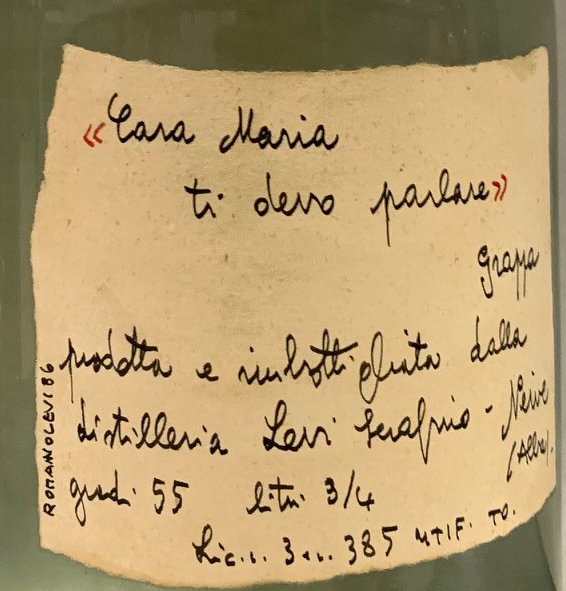 «Cara Maria
ti devo parlare»
Grappa
prodotta e imbottigliata dalla
distilleria Levi Serafino - Neive
(Alba).
gradi 55 litri 3/4
Lic. 385 UTIF. TO.
ROMANO LEVI 86